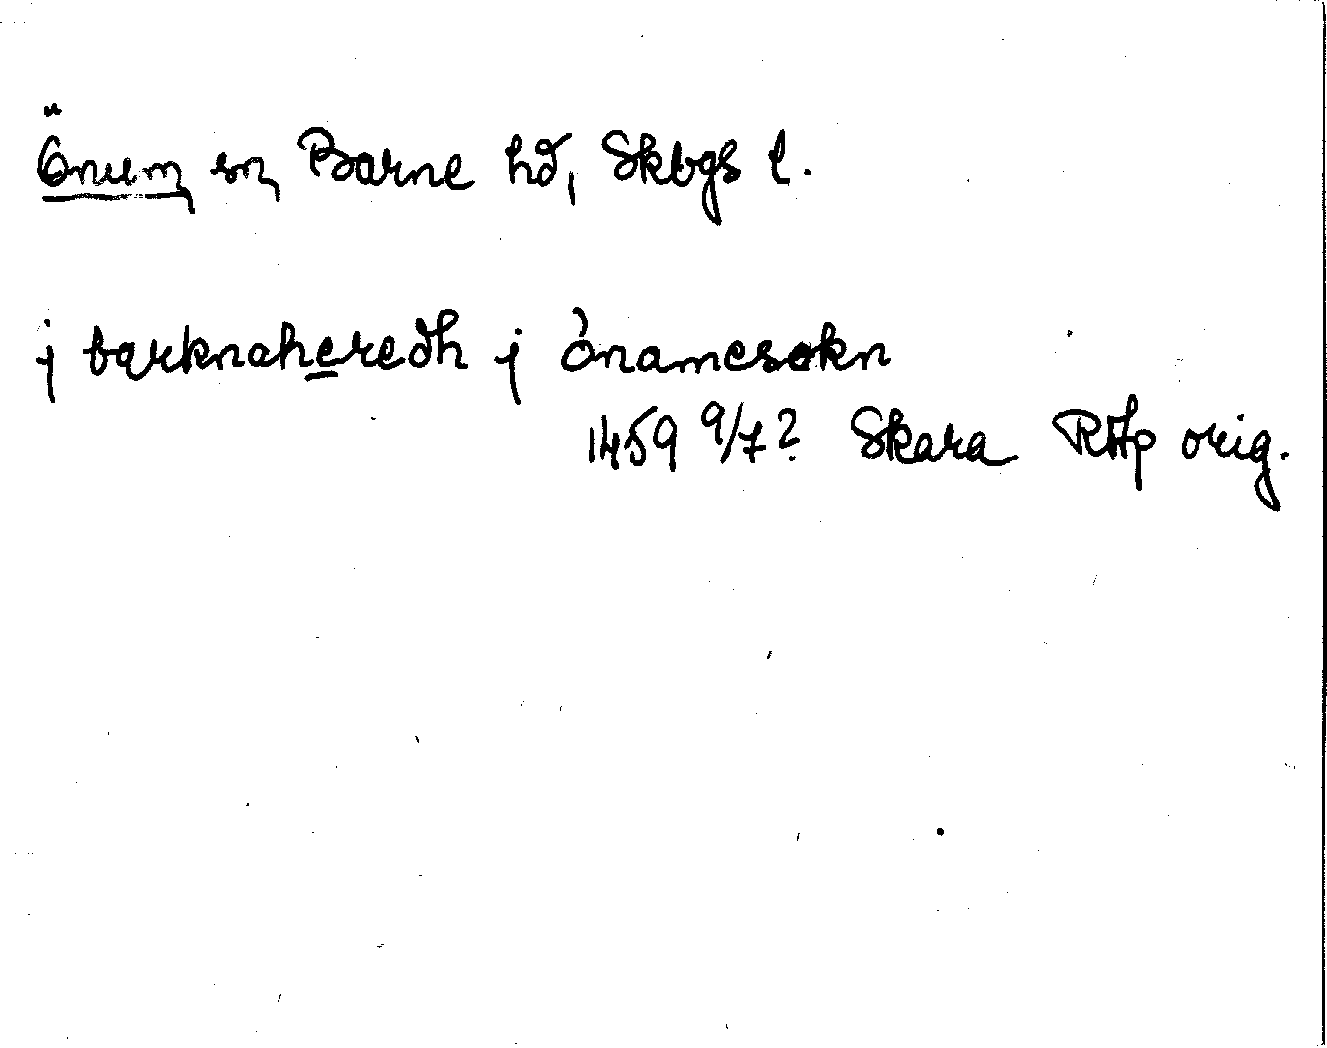 Önum sn, Barne hd, Skbgs l.
j barknaheredh j ònamesokn
1459 9/7? Skara RAp orig.